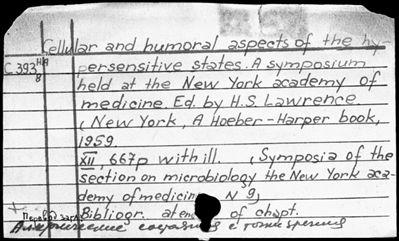 Cellular and humoral aspects of the hy-
C 393 HA/8 persensitive states. A symposium
held at the New York academy of
medicine. Ed. by H.S. Lawrence.
(New York, A Hoeber-Harper book,
1959.
XII, 667p with ill. (Symposia of the
section on microbiology the New York aca-
demy of medicine N 9)
Bibliogr. at end of chapt.
Перевод загл.:
Аллергические состояния с точки зрения